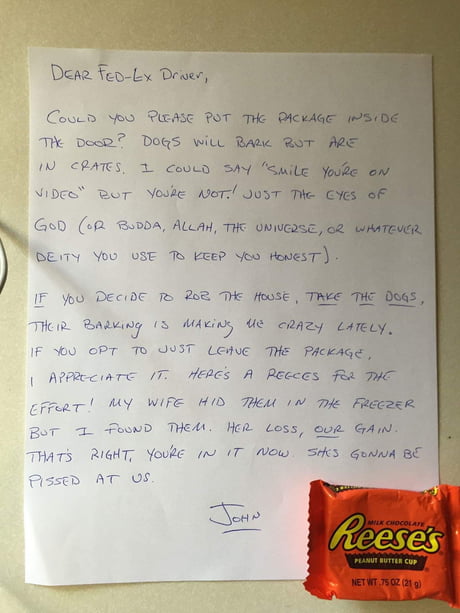 DEAR FED-EX DRIVER,
COULD YOU PLEASE PUT THE PACKAGE INSIDE
THE DOOR? DOGS WILL BARK BUT ARE
IN CRATES. I COULD SAY "SMILE YOU'RE ON
VIDEO" BUT YOU'RE NOT! JUST THE EYES OF
GOD (OR BUDDA, ALLAH, THE UNIVERSE, OR WHATEVER
DEITY YOU USE TO KEEP YOU HONEST).
IF YOU DECIDE TO ROB THE HOUSE, TAKE THE DOGS,
THEIR BARKING IS MAKING ME CRAZY LATELY.
IF YOU OPT TO JUST LEAVE THE PACKAGE,
I APPRECIATE IT. HERE'S A REECES FOR THE
EFFORT! MY WIFE HID THEM IN THE FREEZER
BUT I FOUND THEM. HER LOSS, OUR GAIN.
THAT'S RIGHT, YOU'RE IN IT NOW. SHES GONNA BE
PISSED AT US.
JOHN
MILK CHOCOLATE
Reese's
PEANUT BUTTER CUP
NET WT .75 OZ (21 g)